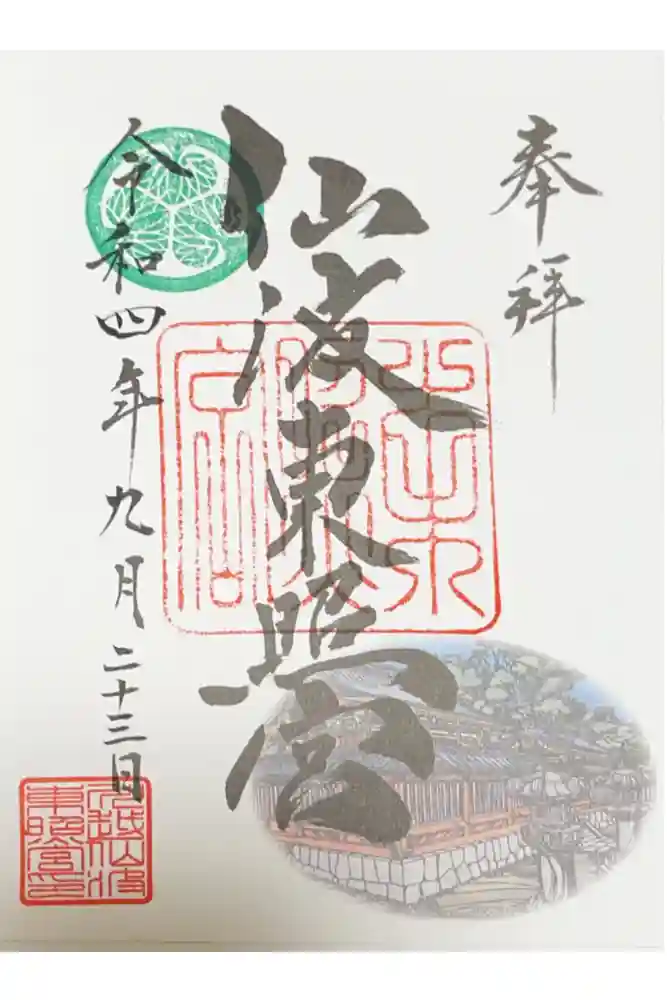 奉拝
仙波東照宮
令和四年九月二十三日
川越仙波
東照宮印